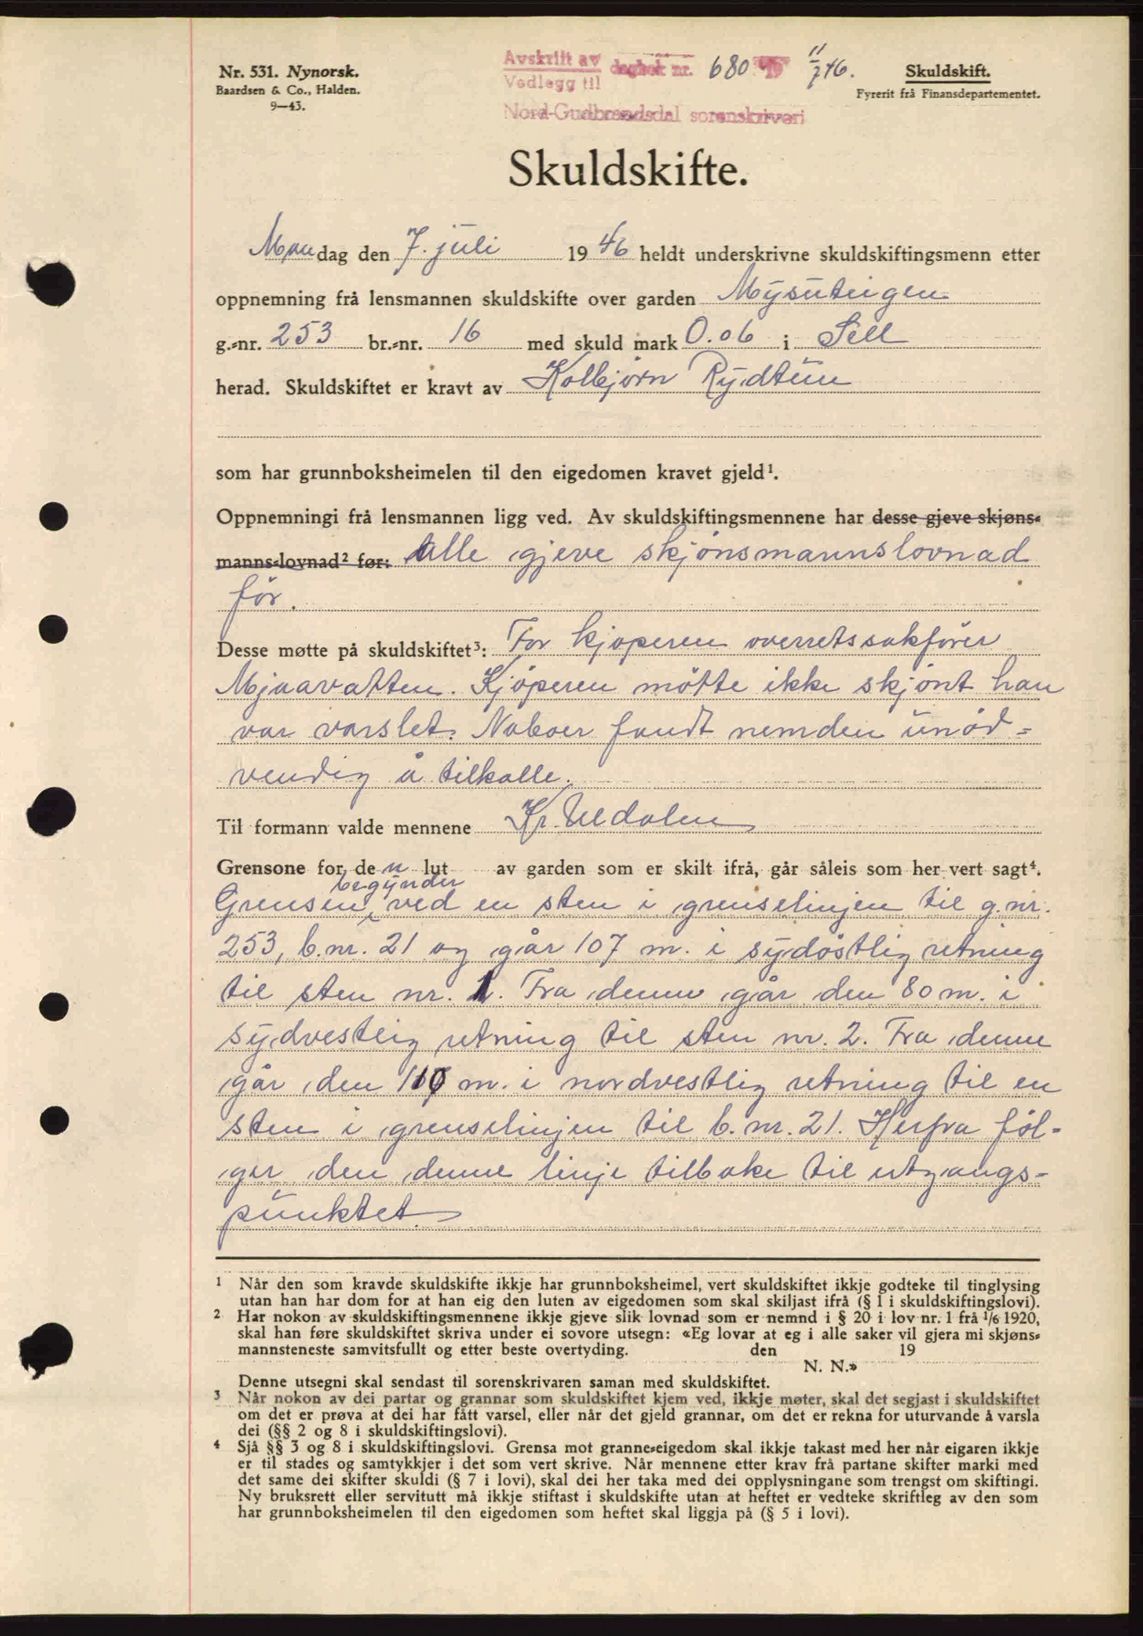 Nr. 531. Nynorsk.
Baardsen & Co., Halden.
9—43.
Avskrift av
Vedlegg til dagbok nr. 680 19 11/7 46.
Nord-Gudbrandsdal sorenskriveri
Skuldskift.
Fyrerit frå Finansdepartementet.
Skuldskifte.
Mandag den 7. juli 1946 heldt underskrivne skuldskiftingsmenn etter
oppnemning frå lensmannen skuldskifte over garden Mysuteigen
g.-nr. 253 br.-nr. 16 med skuld mark 0.06 i Sell
herad. Skuldskiftet er kravt av Kolbjørn Rydtun
som har grunnboksheimelen til den eigedomen kravet gjeld¹.
Oppnemningi frå lensmannen ligg ved. Av skuldskiftingsmennene har desse gjeve skjøns-
manns-lovnad² før: Alle gjeve skjønsmannslovnad
før.
Desse møtte på skuldskiftet³: For kjøperen overretssakfører
Mjaavatten. Kjøperen møtte ikke skjønt han
var varslet. Naboer fandt nemden unød-
vendig å tilkalle.
Til formann valde mennene Kr. Uldalen
Grensone for den lut av garden som er skilt ifrå, går såleis som her vert sagt⁴.
Grensen begynder ved en sten i grenselinjen til g.nr.
253, b.nr. 21 og går 107 m. i sydøstlig retning
til sten nr. 1. Fra denne går den 80 m. i
sydvestlig retning til sten nr. 2. Fra denne
går den 110 m. i nordvestlig retning til en
sten i grenselinjen til b.nr. 21. Herfra føl-
ger den denne linje tilbake til utgangs-
punktet
¹ Når den som kravde skuldskifte ikkje har grunnboksheimel, vert skuldskiftet ikkje godteke til tinglysing
utan han har dom for at han eig den luten av eigedomen som skal skiljast ifrå (§ 1 i skuldskiftingslovi).
² Har nokon av skuldskiftingsmennene ikkje gjeve slik lovnad som er nemnd i § 20 i lov nr. 1 frå 1/6 1920,
skal han føre skuldskiftet skriva under ei sovore utsegn: «Eg lovar at eg i alle saker vil gjera mi skjøns-
mannsteneste samvitsfullt og etter beste overtyding. den 19
N. N.»
Denne utsegni skal sendast til sorenskrivaren saman med skuldskiftet.
³ Når nokon av dei partar og grannar som skuldskiftet kjem ved, ikkje møter, skal det segjast i skuldskiftet
om det er prøva at dei har fått varsel, eller når det gjeld grannar, om det er rekna for uturvande å varsla
dei (§§ 2 og 8 i skuldskiftingslovi).
⁴ Sjå §§ 3 og 8 i skuldskiftingslovi. Grensa mot granne-eigedom skal ikkje takast med her når eigaren ikkje
er til stades og samtykkjer i det som vert skrive. Når mennene etter krav frå partane skifter marki med
det same dei skifter skuldi (§ 7 i lovi), skal dei her taka med dei opplysningane som trengst om skiftingi.
Ny bruksrett eller servitutt må ikkje stiftast i skuldskifte utan at heftet er vedteke skriftleg av den som
har grunnboksheimelen til den eigedomen som heftet skal liggja på (§ 5 i lovi).